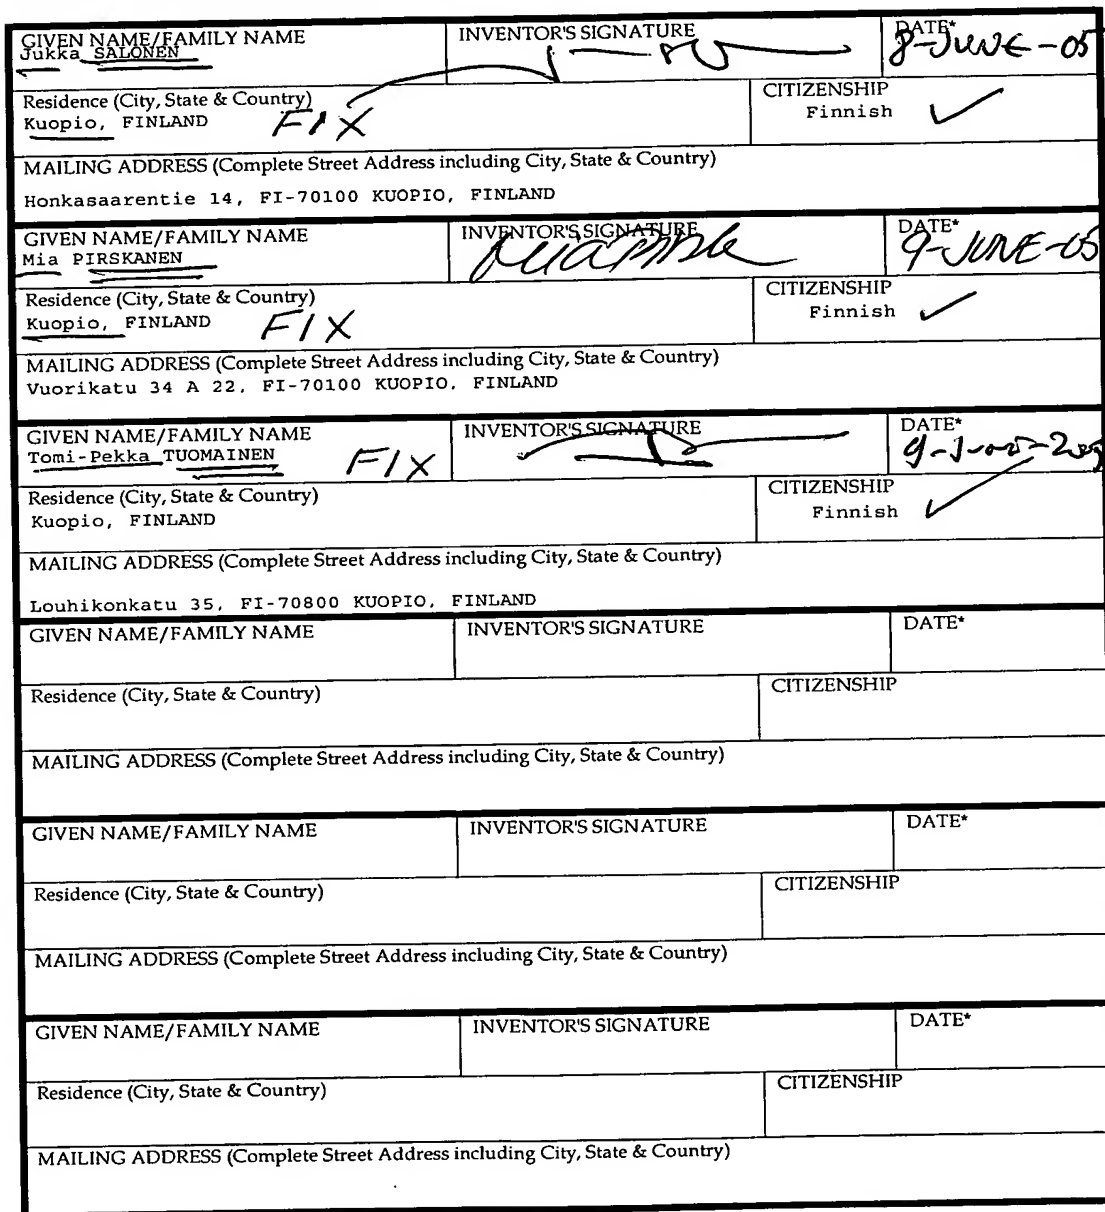 GIVEN NAME/FAMILY NAME INVENTOR'S SIGNATURE DATE*
Jukka SALONEN 8-JUNE-05
Residence (City, State & Country) CITIZENSHIP
Kuopio, FINLAND FIX Finnish ✓
MAILING ADDRESS (Complete Street Address including City, State & Country)
Honkasaarentie 14, FI-70100 KUOPIO, FINLAND
GIVEN NAME/FAMILY NAME INVENTOR'S SIGNATURE DATE*
Mia PIRSKANEN 9-JUNE-05
Residence (City, State & Country) CITIZENSHIP
Kuopio, FINLAND FIX Finnish ✓
MAILING ADDRESS (Complete Street Address including City, State & Country)
Vuorikatu 34 A 22, FI-70100 KUOPIO, FINLAND
GIVEN NAME/FAMILY NAME INVENTOR'S SIGNATURE DATE*
Tomi-Pekka TUOMAINEN FIX
Residence (City, State & Country) CITIZENSHIP
Kuopio, FINLAND Finnish ✓
MAILING ADDRESS (Complete Street Address including City, State & Country)
Louhikonkatu 35, FI-70800 KUOPIO, FINLAND
GIVEN NAME/FAMILY NAME INVENTOR'S SIGNATURE DATE*
Residence (City, State & Country) CITIZENSHIP
MAILING ADDRESS (Complete Street Address including City, State & Country)
GIVEN NAME/FAMILY NAME INVENTOR'S SIGNATURE DATE*
Residence (City, State & Country) CITIZENSHIP
MAILING ADDRESS (Complete Street Address including City, State & Country)
GIVEN NAME/FAMILY NAME INVENTOR'S SIGNATURE DATE*
Residence (City, State & Country) CITIZENSHIP
MAILING ADDRESS (Complete Street Address including City, State & Country)